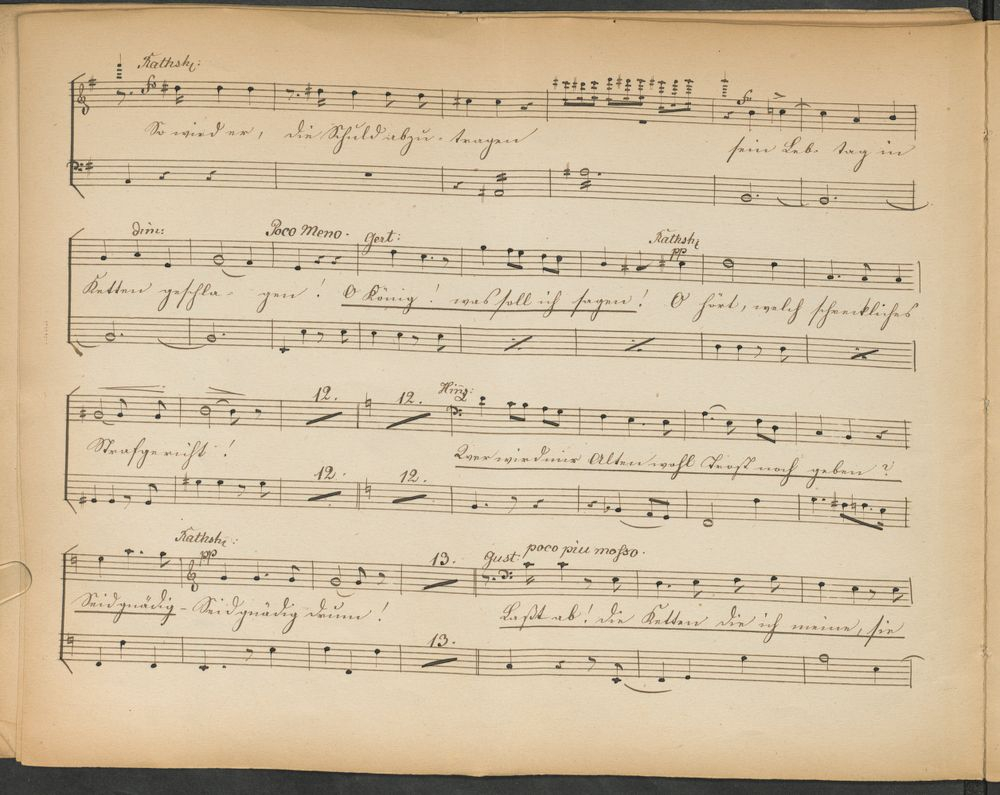 Rathsh:
So wird er, die Schuld abzu-tragen sein Leb-tag in
dim: Poco Meno. Gert: Rathsh pp
Ketten geschla-gen! O König! was soll ich sagen! O hört, welch schreckliches
12. 12. Hinz:
Strafgericht! Wer wird mir Alten wohl Trost noch geben?
12. 12.
Rathsh: pp 13. Gust poco piu mosso.
Seid gnädig - Seid gnädig drum! Laßt ab! die Ketten die ich meine, sie
13.